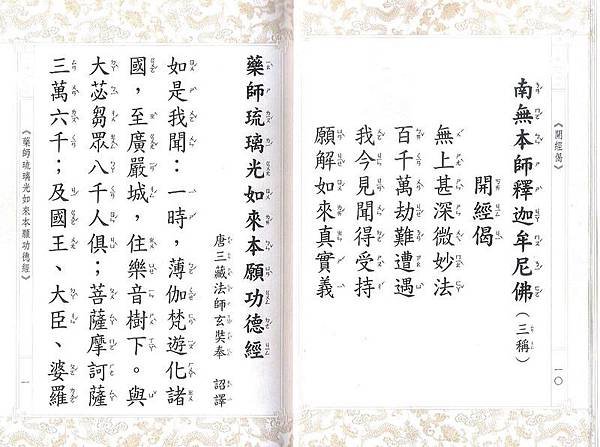 《開經偈》
南無本師釋迦牟尼佛（三稱）
開經偈
無上甚深微妙法
百千萬劫難遭遇
我今見聞得受持
願解如來真實義
一〇
藥師琉璃光如來本願功德經
唐三藏法師玄奘奉　詔譯
如是我聞：一時，薄伽梵遊化諸
國，至廣嚴城，住樂音樹下。與
大苾芻眾八千人俱；菩薩摩訶薩
三萬六千；及國王、大臣、婆羅
《藥師琉璃光如來本願功德經》